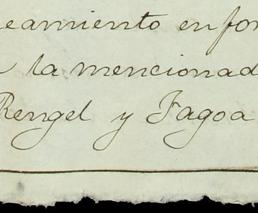 eamiento en for
la mencionad
Rengel y Fagoa